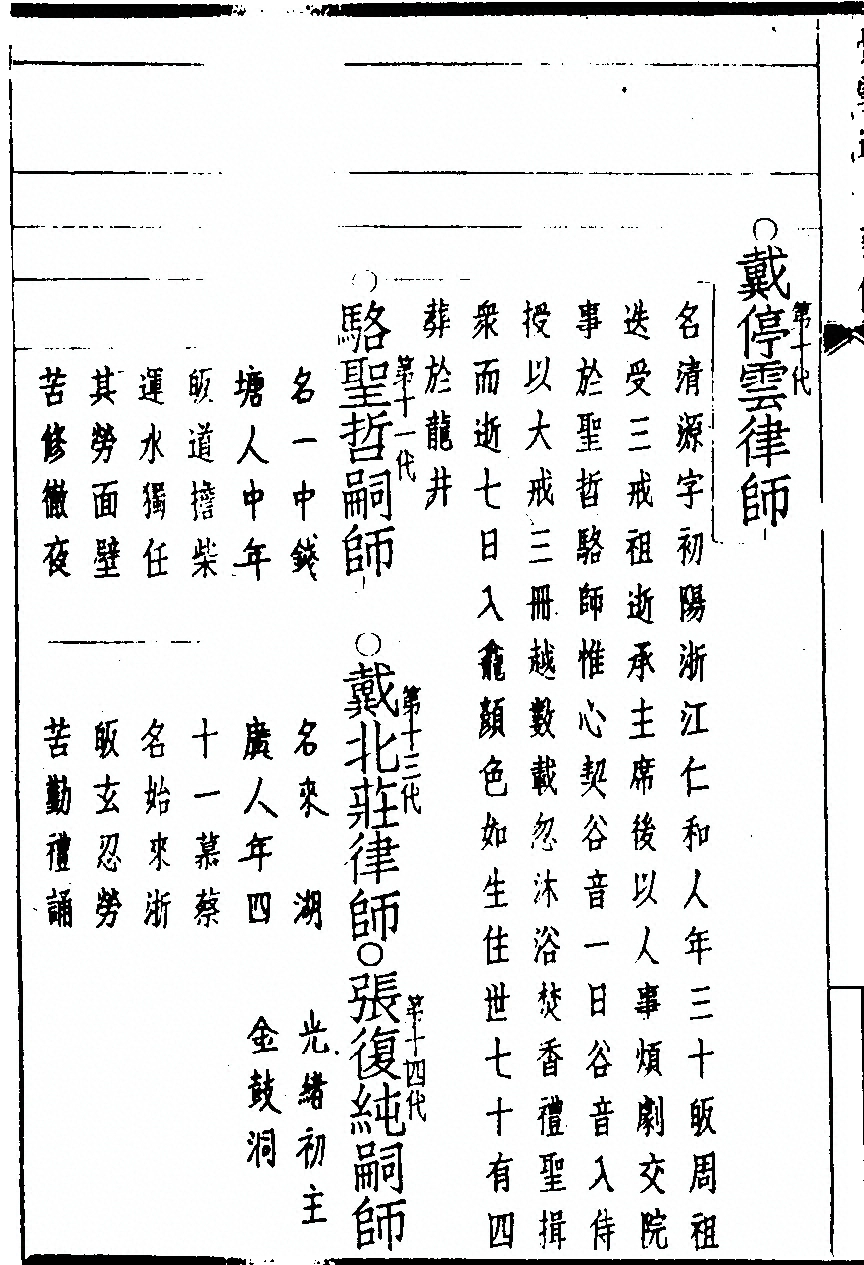 戴停雲律師
第十代
名清源字初陽浙江仁和人年三十皈周祖
迭受三戒祖逝承主席後以人事煩劇交院
事於聖哲駱師惟心契谷音一日谷音入侍
授以大戒三冊越數載忽沐浴焚香禮聖揖
衆而逝七日入龕顏色如生住世七十有四
葬於龍井
駱聖哲嗣師
第十一代
名一中錢
塘人中年
皈道擔柴
運水獨任
其勞面壁
苦修徹夜
戴北莊律師
第十三代
名來湖
廣人年四
十一慕蔡
名始來浙
皈玄忍勞
苦勤禮誦
張復純嗣師
第十四代
光緒初主
金鼓洞